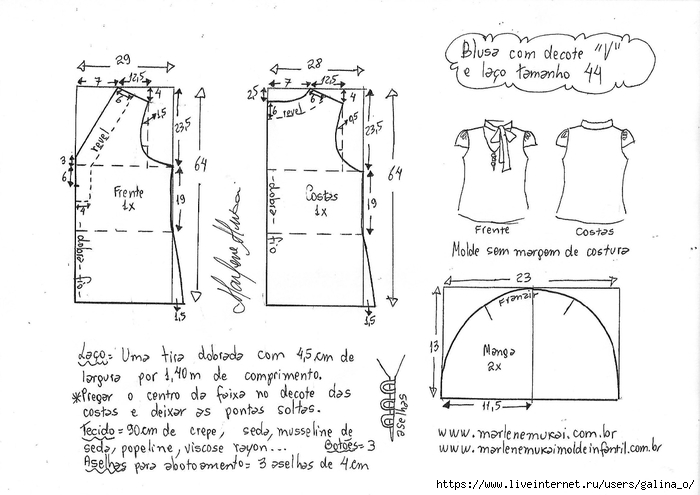 Blusa com decote "V"
e laço tamanho 44
29
7
12,5
6
4
revel
1,5
23,5
64
3
6
Frente
1x
4
19
-dobra- fio-
1,5
28
7
12,5
2,5
6
4
6
revel
0,5
23,5
64
Costas
1x
19
-dobra- fio
1,5
Marlene Mukai
Frente
Costas
Molde sem margem de costura
23
Franzir
13
Manga
2x
11,5
Laço = Uma tira dobrada com 4,5 cm de
largura por 1,40 m de comprimento.
*Pregar o centro da faixa no decote das
costas e deixar as pontas soltas.
Tecido = 90cm de crepe, seda, musseline de
seda, popeline, viscose rayon... Botões = 3
Aselhas para abotoamento = 3 aselhas de 4 cm
aselhas
www.marlenemukai.com.br
www.marlenemukaimoldeinfantil.com.br
https://www.liveinternet.ru/users/galina_o/